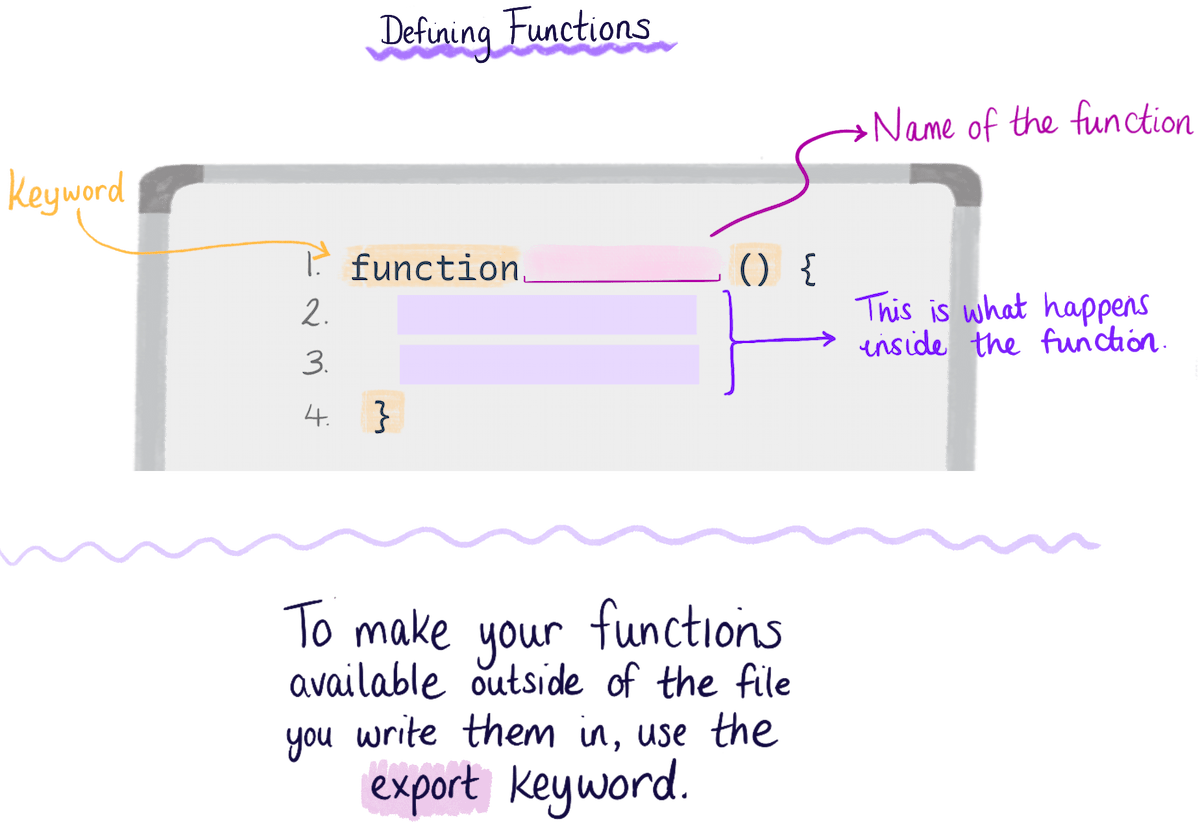 Defining Functions
Name of the function
Keyword
1. function () {
2.
3.
4. }
This is what happens
inside the function.
To make your functions
available outside of the file
you write them in, use the
export keyword.